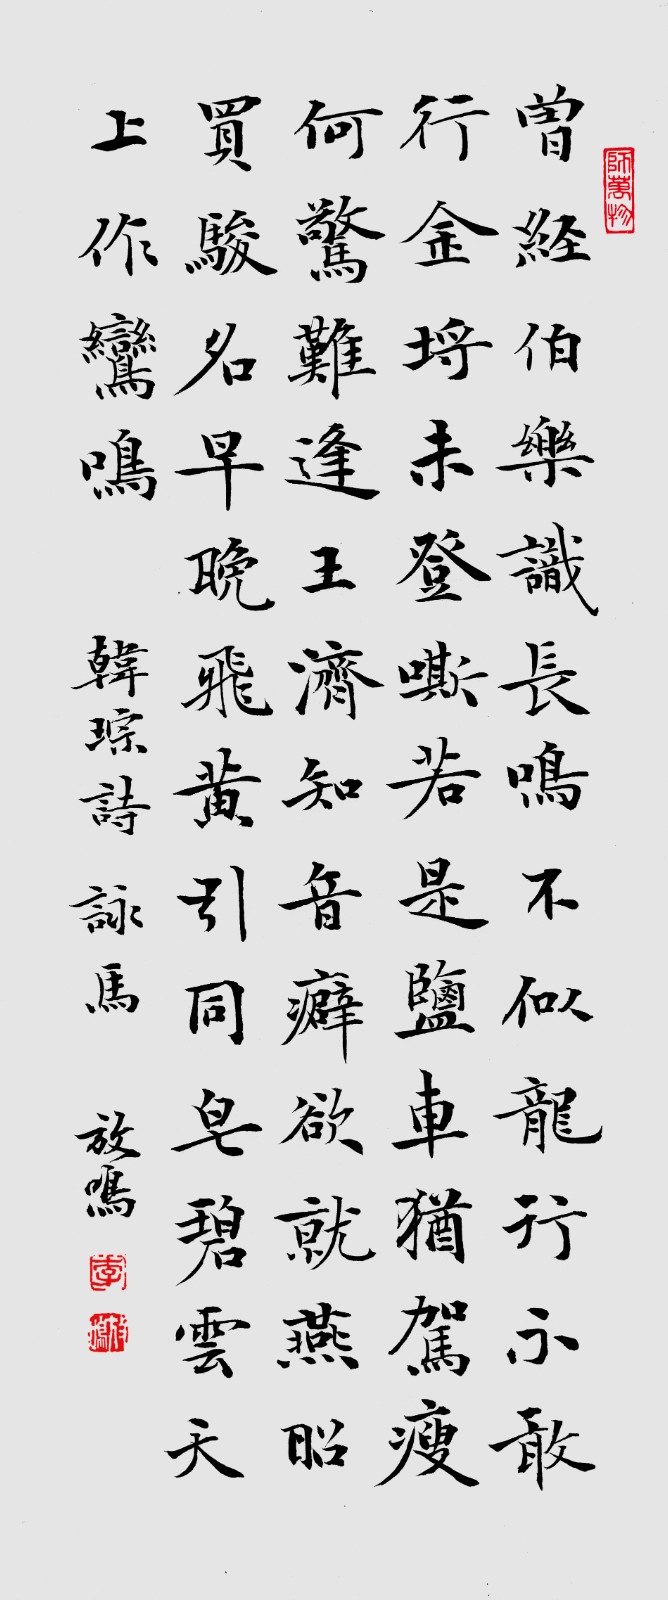 師萬物
曾経伯樂識長鳴不似龍行不敢
行金埒未登嘶若是鹽車猶駕瘦
何驚難逢王濟知音癖欲就燕昭
買駿名早晚飛黃引同皂碧雲天
上作鸞鳴 韓琮詩 詠馬 放鳴